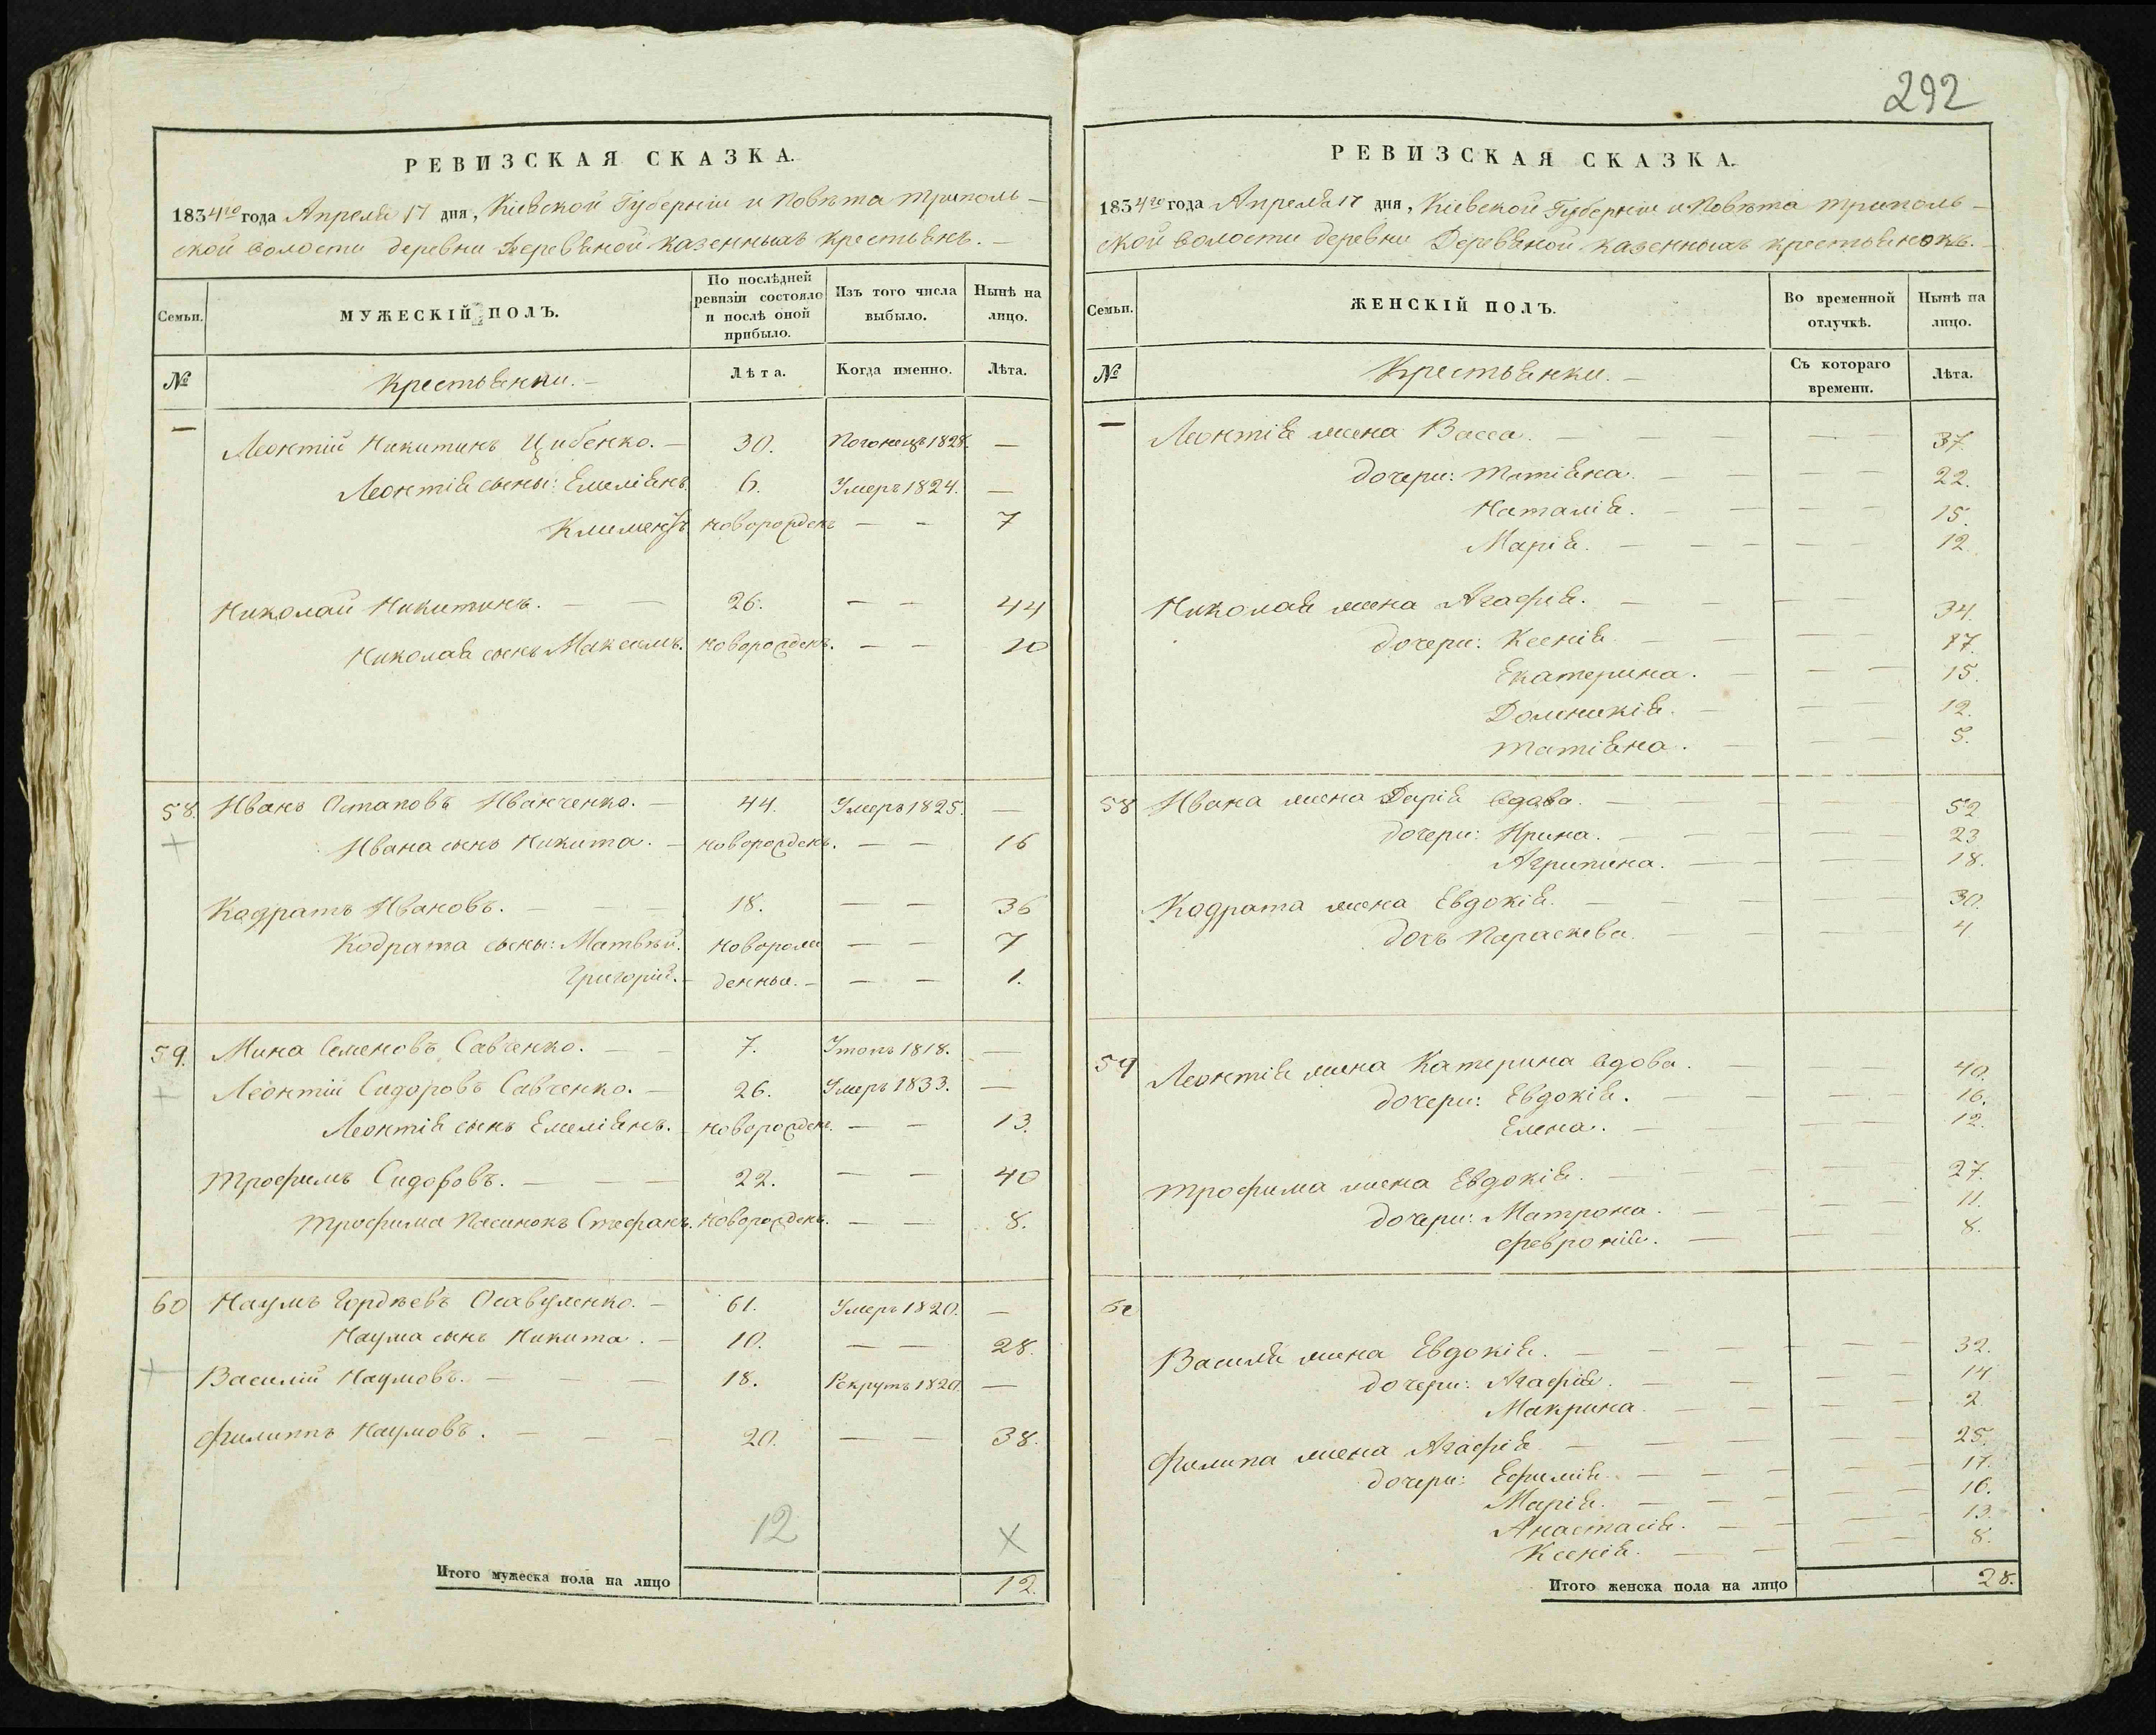 292
РЕВИЗСКАЯ СКАЗКА.
1834го года Апреля 17 дня, Кіевской Губерніи и Повѣта Триполь-
ской волости деревни Деревяной казенныхъ крестьянъ.
Семьи. МУЖЕСКІЙ ПОЛЪ. По послѣдней ревизіи состояло и послѣ оной прибыло. Изъ того числа выбыло. Нынѣ на лицо.
№ Крестьянии. — Лѣта. Когда именно. Лѣта.
— Леонтій Никитинъ Цибенко. — 30. 1828. —
Леонтія сыны: Емеліянъ. 6. Умеръ 1824. —
Климентъ новорожденъ — — 7
Николай Никитинъ. — — 26. — — 44
Николая сынъ Максимъ. новорожденъ. — — 10
58. Иванъ Остаповъ Иванченко. — 44. Умеръ 1825. —
Ивана сынъ Никита. — новорожденъ. — — 16
Кодратъ Ивановъ. — — — 18. — — 36
Кодрата сыны: Матвѣй. новорож — — 7
Григорій. — денны. — — — 1.
59. Мина Семеновъ Савченко. — — 7. Утопъ 1818. —
Леонтій Сидоровъ Савченко. — 26. Умеръ 1833. —
Леонтія сынъ Емеліянъ. новорожден. — — 13.
Трофимъ Сидоровъ. — — — 22. — — 40
Трофима Пасинокъ Стефанъ. новорожденъ. — — 8.
60 Наумъ Гордѣевъ Осавуленко. — 61. Умеръ 1820. —
Наума сынъ Никита. — 10. — — 28.
Василій Наумовъ. — — — 18. Рекрутъ 1820. —
Филиппъ Наумовъ. — — — 20. — — 38.
12 X
Итого мужеска пола на лицо 12.
РЕВИЗСКАЯ СКАЗКА.
1834го года Апреля 17 дня, Кіевской Губерніи и Повѣта Триполь-
ской волости деревни Деревяной казенныхъ крестьянокъ.
Семьи. ЖЕНСКІЙ ПОЛЪ. Во временной отлучкѣ. Нынѣ на лицо.
№ Крестьянки. — Съ котораго времени. Лѣта.
— Леонтія жена Васса. — — — — 37.
дочери: Татіяна. — — — — 22.
Наталія. — — — — 15.
Марія. — — — — — 12.
Николая жена Агафія. — — — — 34.
дочери: Ксенія — — — — 17.
Екатерина. — — — 15.
Домникія. — — — 12.
Татіяна. — — — 5.
58 Ивана жена Дарія вдова. — — — — 52
дочери: Ирина. — — — — 23
Агрипина. — — — — 18.
Кодрата жена Евдокія. — — — — 30.
дочъ Параскева. — — — — 4
59 Леонтія жена Катерина вдова. — — — 40.
дочери: Евдокія. — — — — 16.
Елена. — — — 12.
Трофима жена Евдокія. — — — — 27.
дочери: Матрона. — — — — 11.
Февронія. — — — 8.
60
Василія жена Евдокія. — — — — — 32.
дочери: Агафія. — — — — 14
Макрина. — — — — 2.
Филипа жена Агафія — — — — — 25.
дочери: Ефимія. — — — — 17.
Марія. — — — — 16.
Анастасія. — — — — 13.
Ксенія. — — — 8.
Итого женска пола на лицо 28.